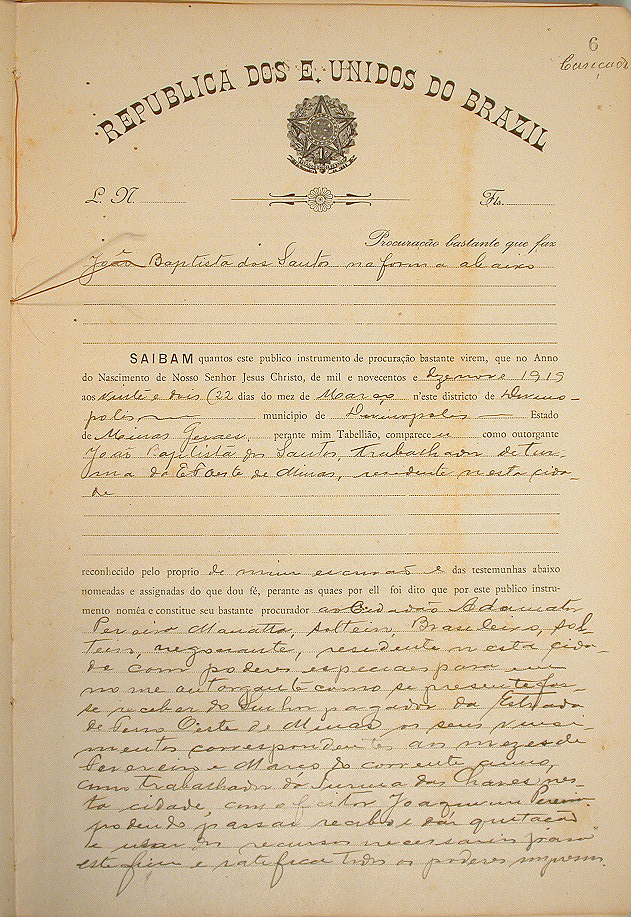 6
REPUBLICA DOS E. UNIDOS DO BRAZIL
L. N.
Fls.
Procuração bastante que faz
João Baptista dos Santos na forma abaixo
SAIBAM quantos este publico instrumento de procuração bastante virem, que no Anno
do Nascimento de Nosso Senhor Jesus Christo, de mil e novecentos e dezenove 1919
aos vinte e dois (22 dias do mez de Março n'este districto de Divino-
polis, municipio de Divinopolis Estado
de Minas Geraes, perante mim Tabellião, compareceu como outorgante
João Baptista dos Santos, trabalhador de tur-
ma da E F Oeste de Minas, residente nesta cida-
de
reconhecido pelo proprio de mim escrivão e das testemunhas abaixo
nomeadas e assignadas do que dou fé, perante as quaes por ell foi dito que por este publico instru-
mento nomêa e constitue seu bastante procurador ao Cidadão
Pereira solteiro, Brasileiro, sol-
teiro, negociante, residente nesta cida-
de com poderes especiaes para em
nome outorgante como se presente fos-
se receber do Senhor pagador da Estrada
de Ferro Oeste de Minas os seus venci-
mentos correspondentes aos mezes de
Fevereiro e Março do corrente anno,
como trabalhador da turma das Chaves nes-
ta cidade, com o feitor Joaquim Pereira
podendo passar recibo e dar quitação
e usar dos recursos necessarios para
este fim e ratifica todos os poderes impressos.